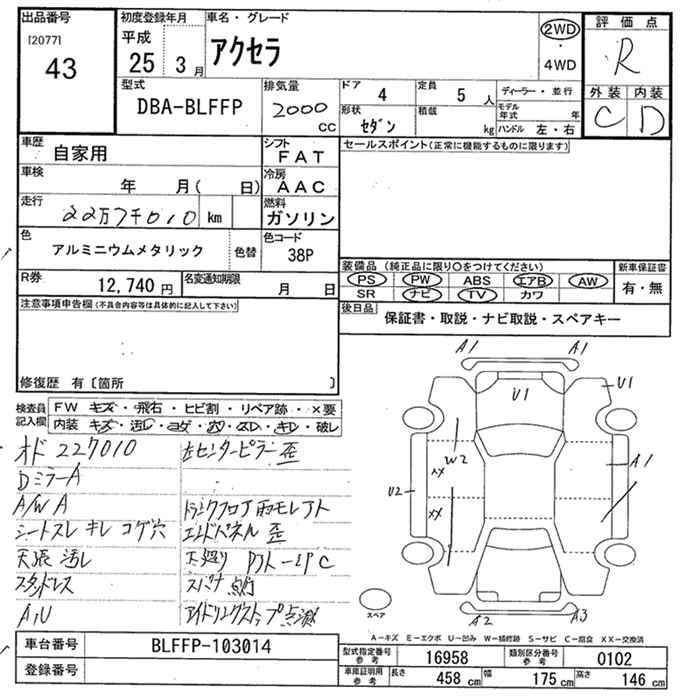 出品番号
[2077]
43
初度登録年月
平成
25 3 月
車名・グレード
アクセラ
2WD
・
4WD
評価点
R
外装 内装
C D
型式
DBA-BLFFP
排気量
2000
CC
ドア 4
定員 5 人
形状 セダン
積載 kg
ディーラー・並行
モデル年式 年
ハンドル 左・右
車歴
自家用
シフト
FAT
車検
年 月( 日)
冷房
AAC
走行
22万7千010 km
燃料
ガソリン
色
アルミニウムメタリック
色替
色コード
38P
R券
12,740 円
名変通知期限
月 日
セールスポイント(正常に機能するものに限ります)
装備品(純正品に限り○をつけてください)
PS PW ABS エアB AW
SR ナビ TV カワ
新車保証書
有・無
後日品
保証書・取説・ナビ取説・スペアキー
注意事項申告欄(不具合内容等は具体的に記入して下さい)
修復歴 有〔箇所 〕
検査員記入欄
FW キズ・飛石・ヒビ割・リペア跡・×要
内装 キズ・汚レ・コゲ・穴・スレ・キレ・破レ
オド 227010
DミラーA
A/W A
シートスレ キレ コゲ穴
天張 汚レ
スタッドレス
A,U
左センターピラー歪
トランクフロア雨モレアト
エンドパネル 歪
下廻り
スパナ 点灯
アイドリングストップ点滅
A1 A1
U1
U1
W2
XX
XX
U2
A1
A2 A3
スペア
A－キズ E－エクボ U－凹み W－補修跡 S－サビ C－腐食 XX－交換済
車台番号
BLFFP-103014
登録番号
型式指定番号 参考
16958
類別区分番号 参考
0102
車庫証明用 参考
長さ 458 cm
幅 175 cm
高さ 146 cm